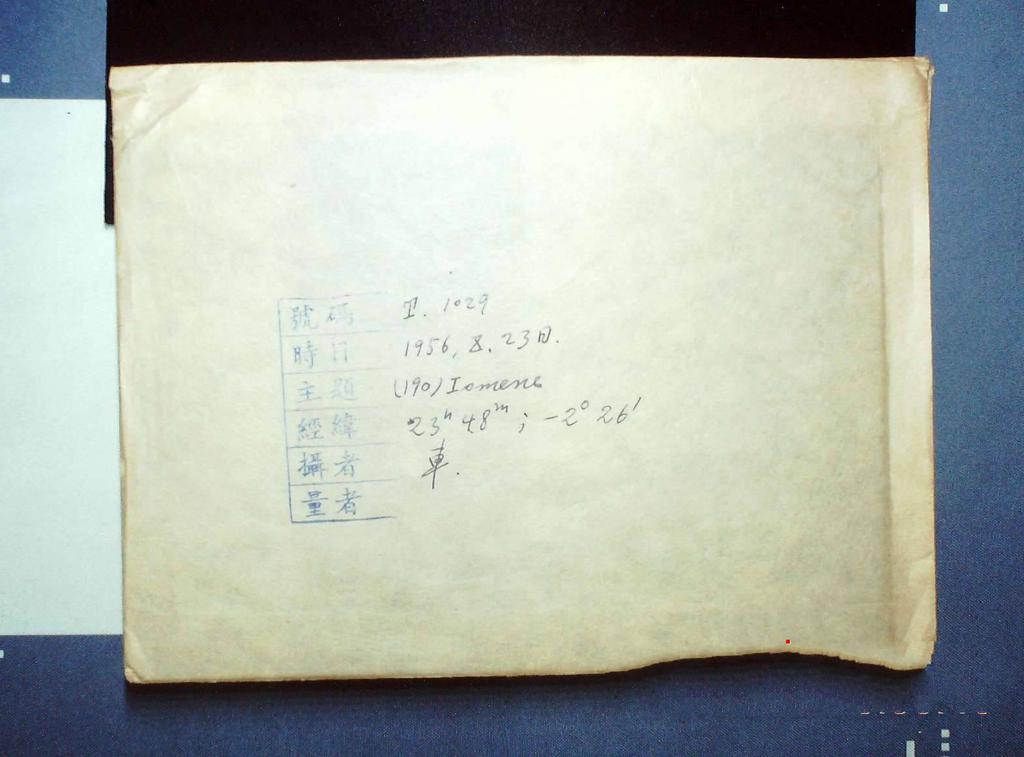 號碼 I. 1029
時日 1956, 8. 23日.
主題 (190) Ismene
經緯 23h 48m ; -2° 26'
攝者 車.
量者